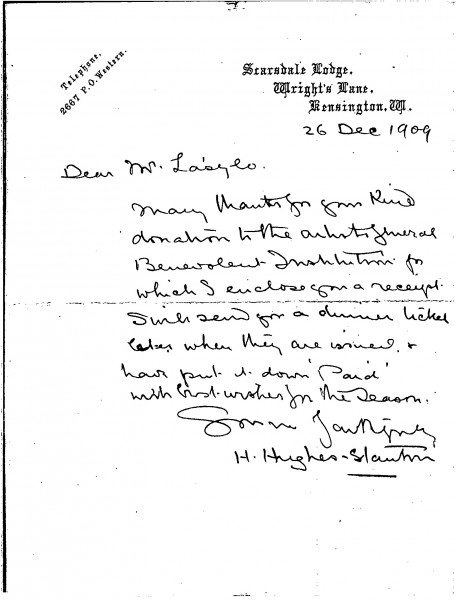 Telephone.
2667 P.O. Western.
Scarsdale Lodge.
Wright's Lane.
Kensington, W.
26 Dec 1909
Dear Mr László.
Many thanks for your kind
donation to the artists general
Benevolent Institution for
which I enclose you a receipt.
I will send you a dinner ticket
later when they are issued &
have put it down 'Paid'
with best wishes for the Season.
H. Hughes-Stanton